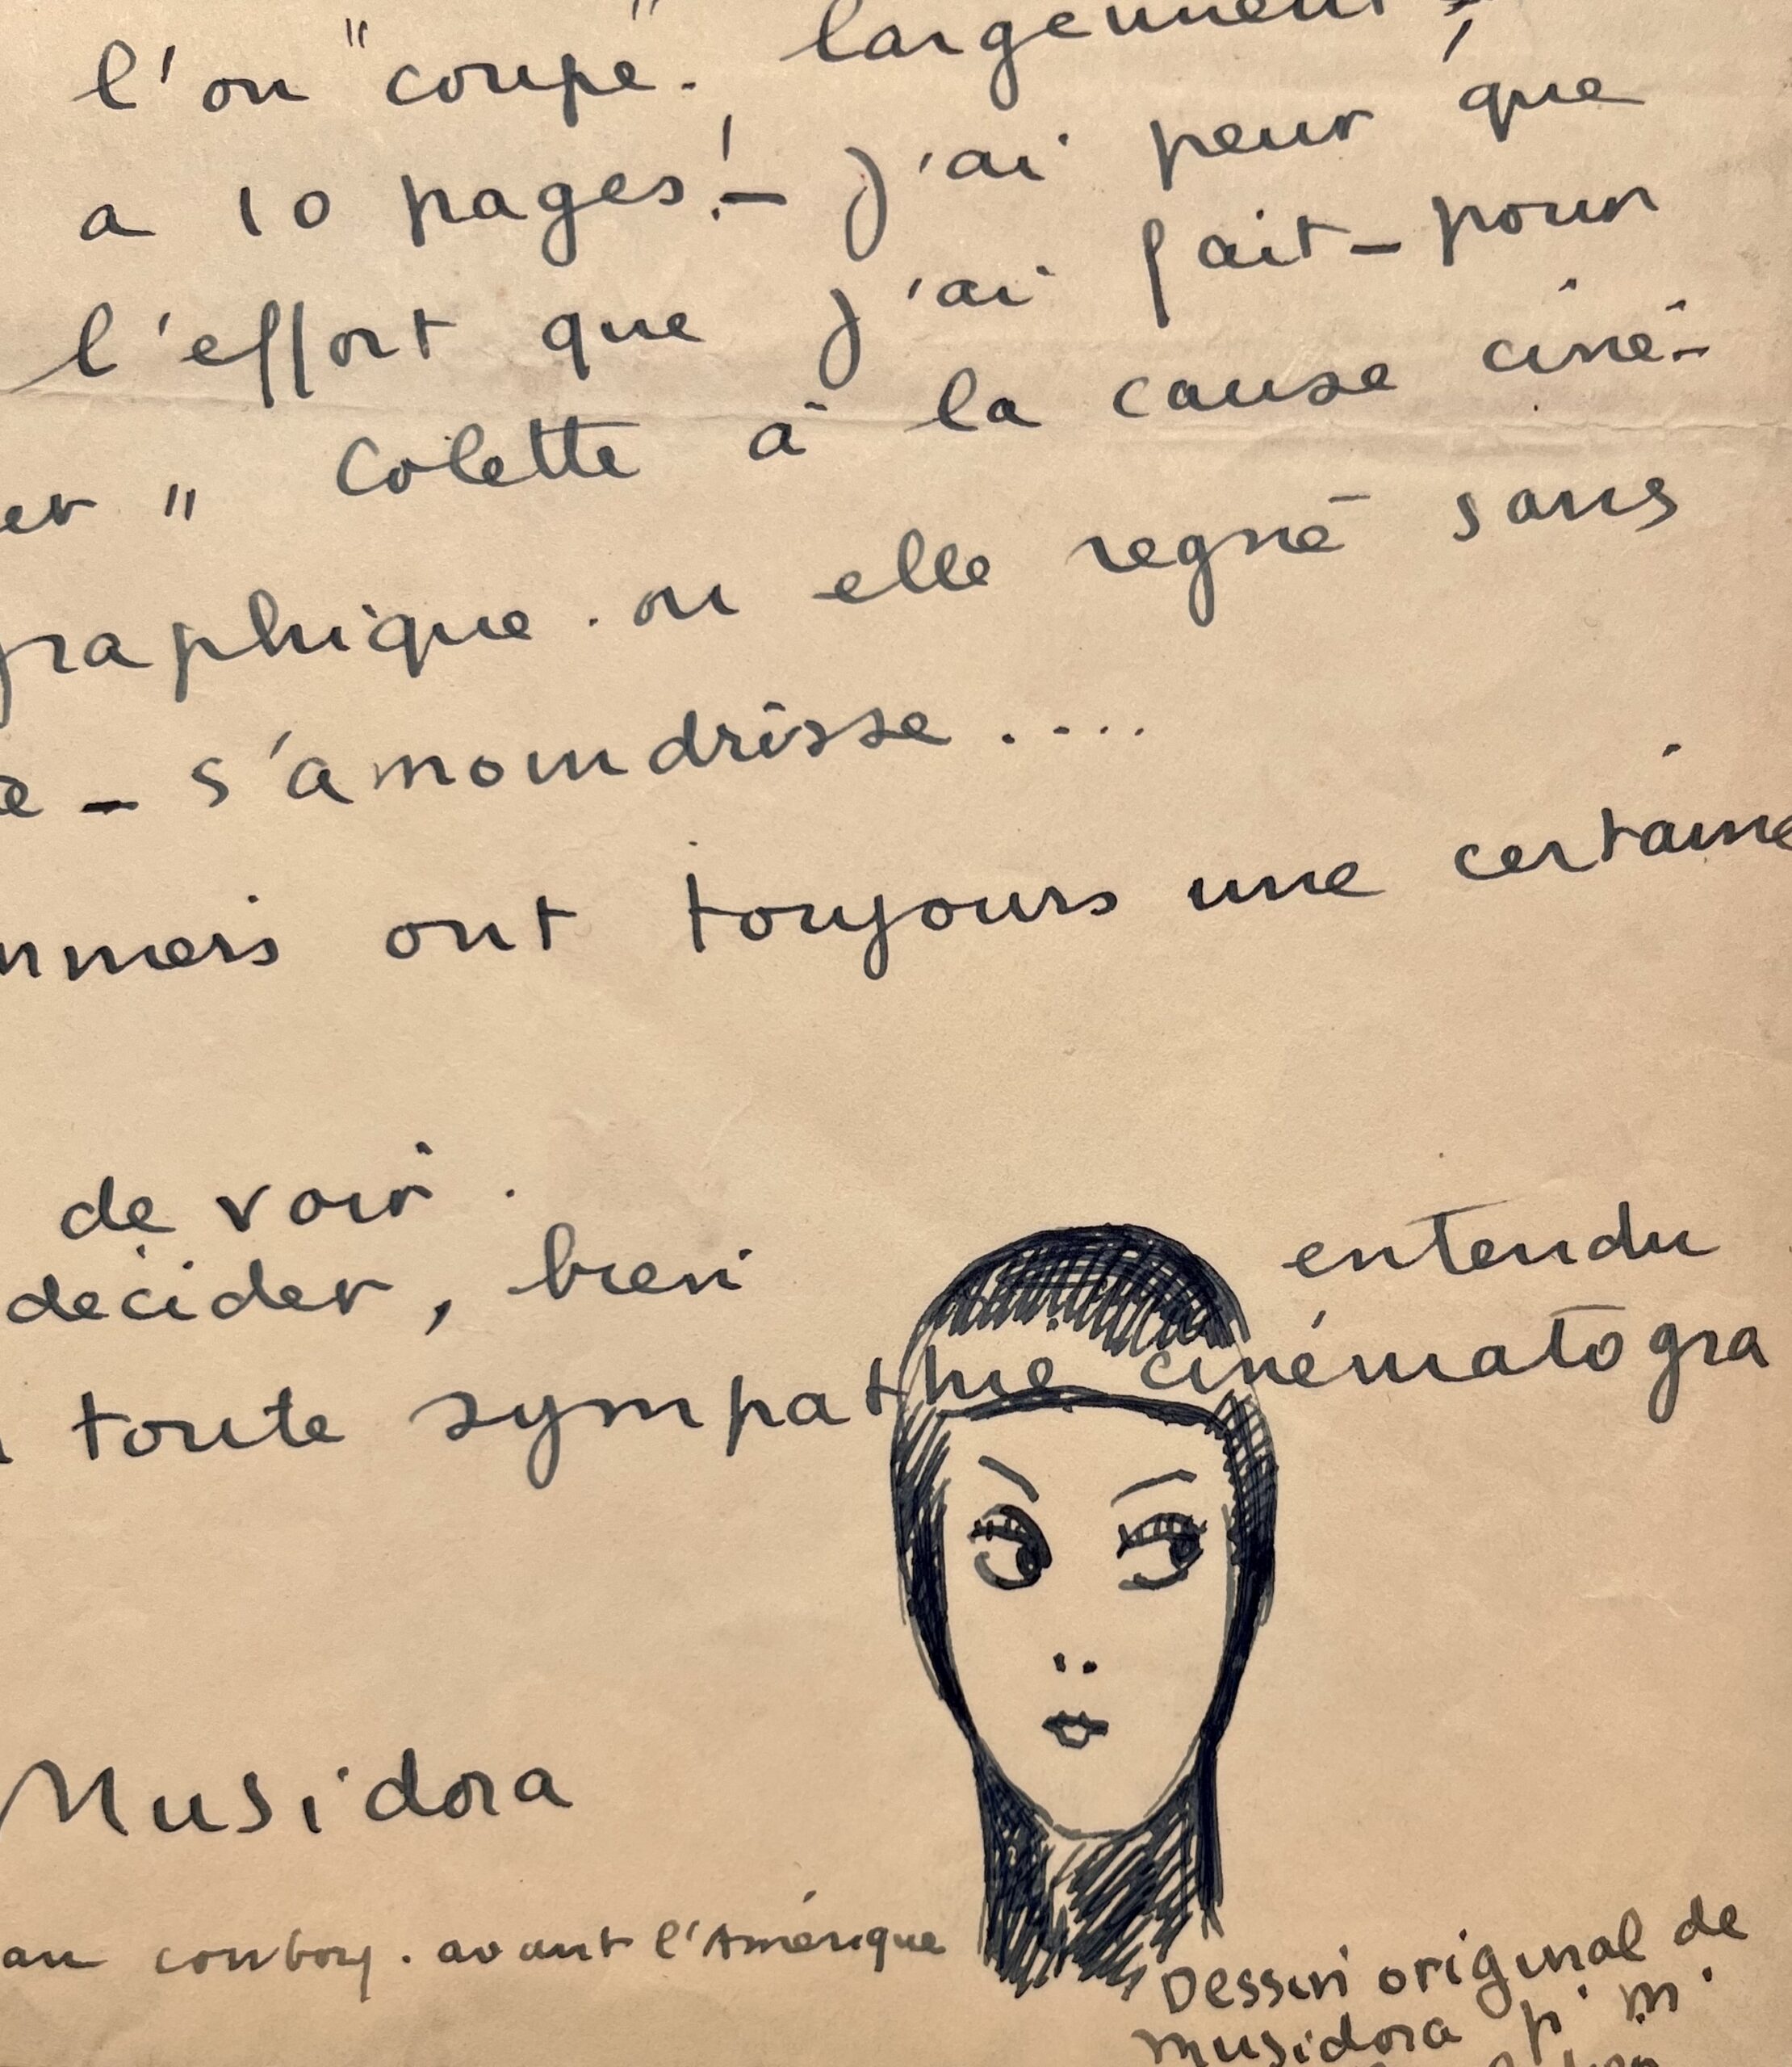 l'on "coupe". largement
a 10 pages! – J'ai peur que
l'effort que j'ai fait – pour
er " Colette à la cause ciné-
graphique. ou elle regné sans
e – s'amoindrisse.....
ont toujours une certaine
de voir.
decider, bien entendu
toute sympathie cinématogra
Musidora
au cowboy. avant l'Amérique
Dessin original de
musidora p. m.